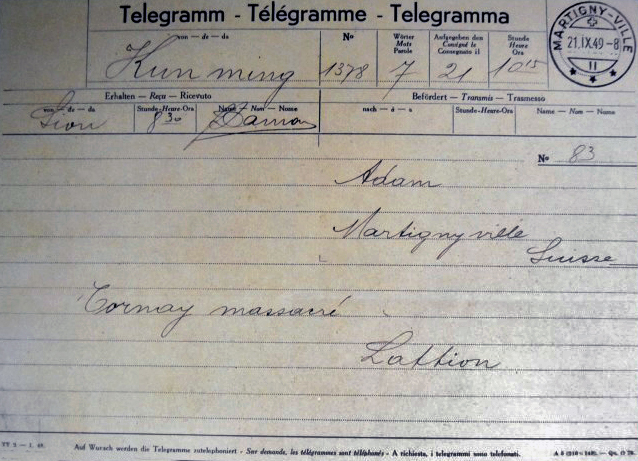 Telegramm - Télégramme - Telegramma
von — de — da
Kunming
No
1378
Wörter
Mots
Parole
7
Aufgegeben den
Consigné le
Consegnato il
21
Stunde
Heure
Ora
10 15
MARTIGNY-VILLE
21.IX.49-8
II
Erhalten — Reçu — Ricevuto
Befördert — Transmis — Trasmesso
von — de — da
Sion
Stunde-Heure-Ora
8 30
Name — Nom — Nome
nach — à — a
Stunde-Heure-Ora
Name — Nom — Nome
No 83
Adam
Martignyville
Suisse
Tornay massacré
Lattion
TT 2. — 1. 48.
Auf Wunsch werden die Telegramme zutelephoniert - Sur demande, les télégrammes sont téléphonés - A richiesta, i telegrammi sono telefonati.
A 5 (210 × 148). — Qu. O 70.